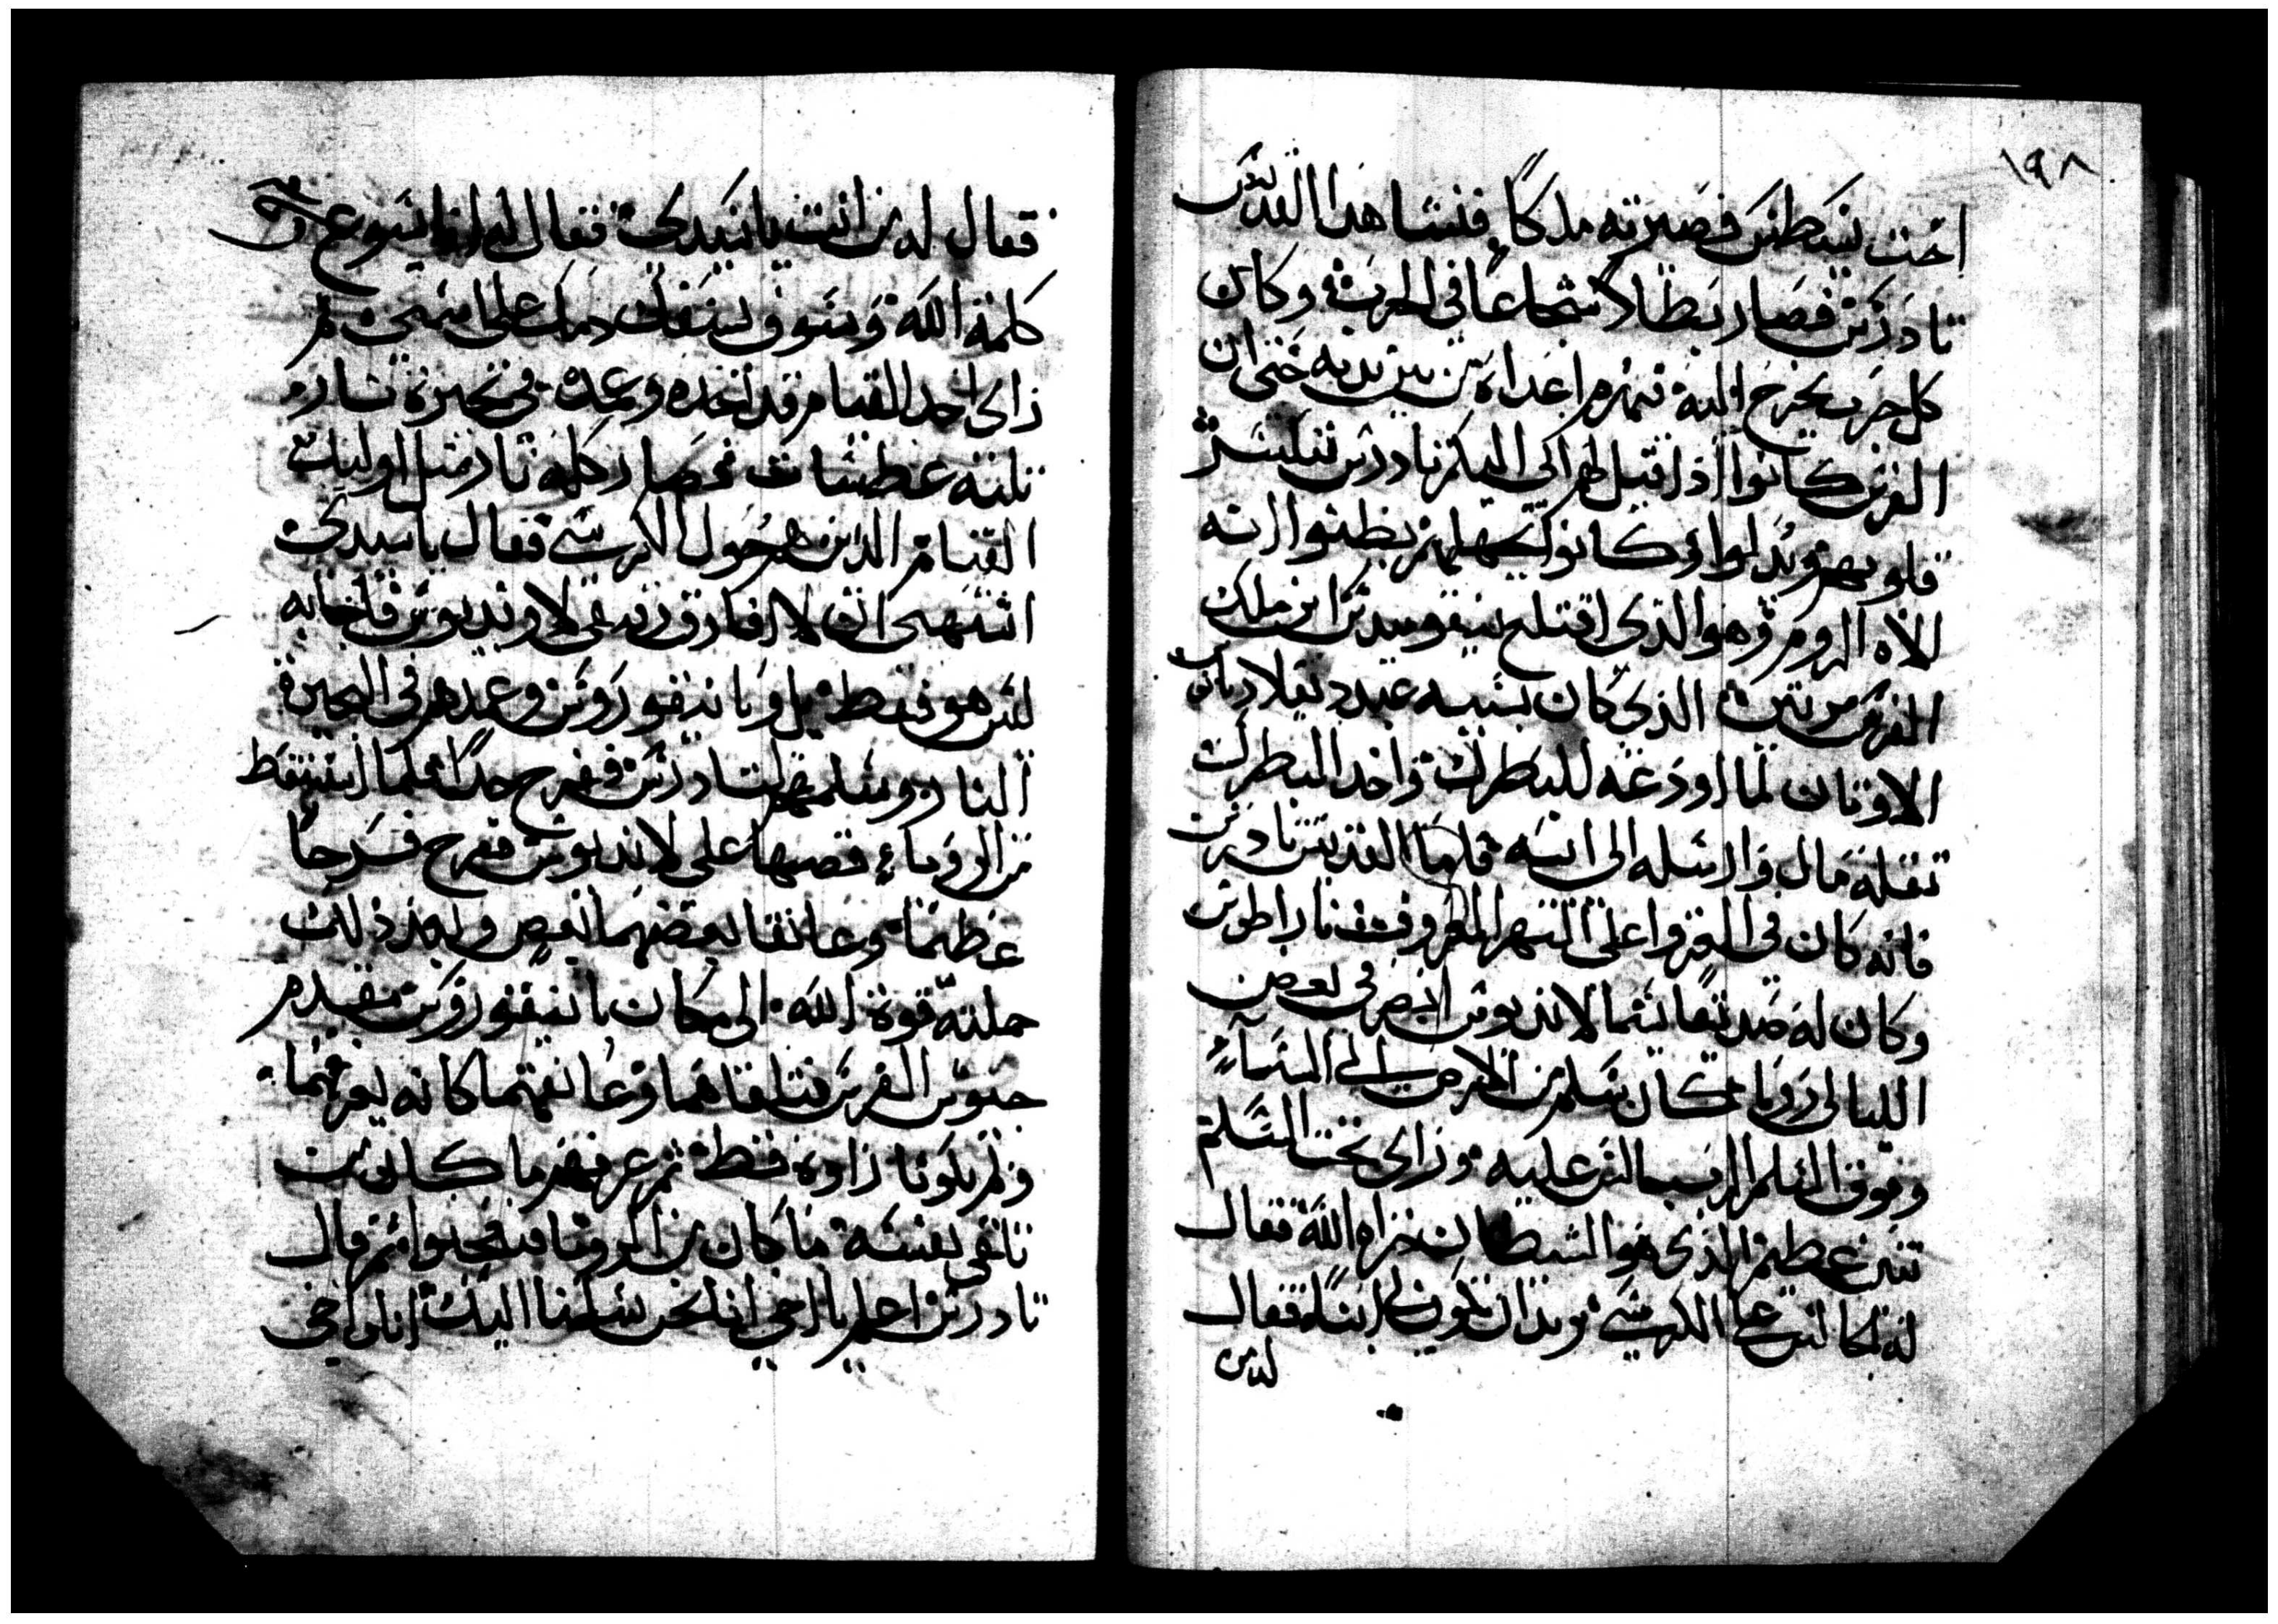 ١٩٨
اخت بسطس فصيرته ملكا فنشا هدا القديس
تادرس فصار بطلا شجاعا فى الحرب وكان
كل حرب يخرج اليه تهزم اعداه من بين يديه حتى ان
الفرس كانوا اذا قيل لهم اتى اليكم تادرس تنكسر
قلوبهم ويدلوا وكانوا لجهلهم يظنوا انه
الاه الروم وهو الذى اقتلع نيقوميدس ابن ملك
الفرس مرتين الذى كان بسببه عبد دقلاديانوس
الاوتان لما اودعه للبطرك واخد البطرك
تقله مال وارسله الى ابيه فاما القديس تادرس
فانه كان فى الغزو اعلى النهر المعروف
وكان له صديقا يسما لانديوس ابصر فى بعض
الليالى رويا كان سلم من الارض الى السماء
وفوق السلم الرب جالس عليه وراى تحت السلم
تنين عظيم الذى هو الشيطان خزاه الله فقال
له الجالس على الكرسى تريد ان تكون لى ابنا فقال
له من
فقال له من انت يا سيدى فقال له انا يسوع
كلمة الله وسوف يسفك دمك على اسمى ثم
راى احد القيام قد اخده وعمده فى بحيرة نار
تلته فصار كله نار متل اوليك
القيام الذين هم حول الكرسى فقال يا سيدى
اشتهى ان لا افارق رفيقى لاونديوس فاجابه
ليس هو فقط بل وبانيقوروس وعمدهم فى البحيرة
النار وسلمهم لتادرس ففرح جدا فلما استيقظ
من الرويا قصها على لانديوس ففرح فرحا
عظيما وعانقا بعضهما بعض وبعد ذلك
حملته قوة الله الى مكان بانيقوروس مقدم
جيوش الفرس فتلقاهما وعانقهما كانه يعرفهما
ولم يكونا راوه فقط ثم عرفهم ما كان من
تلقى نفسه ما كان من الرويا فتعجبوا ثم قال
تادرس اعلم يا اخى اننا نحن ارسلنا اليك انا واخى